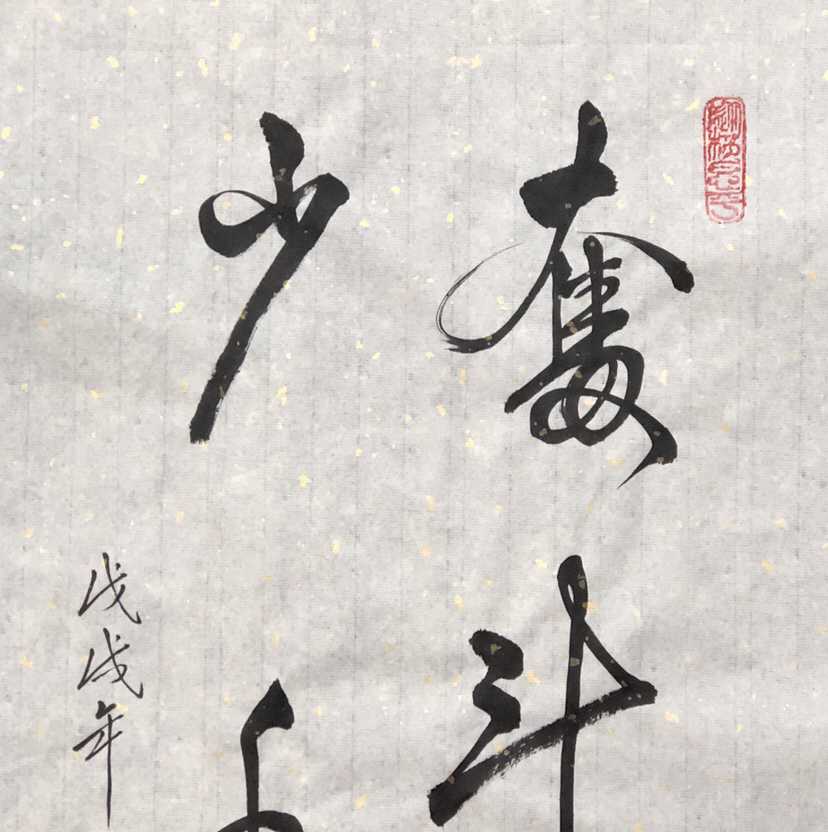 奮斗
少
戊戌年